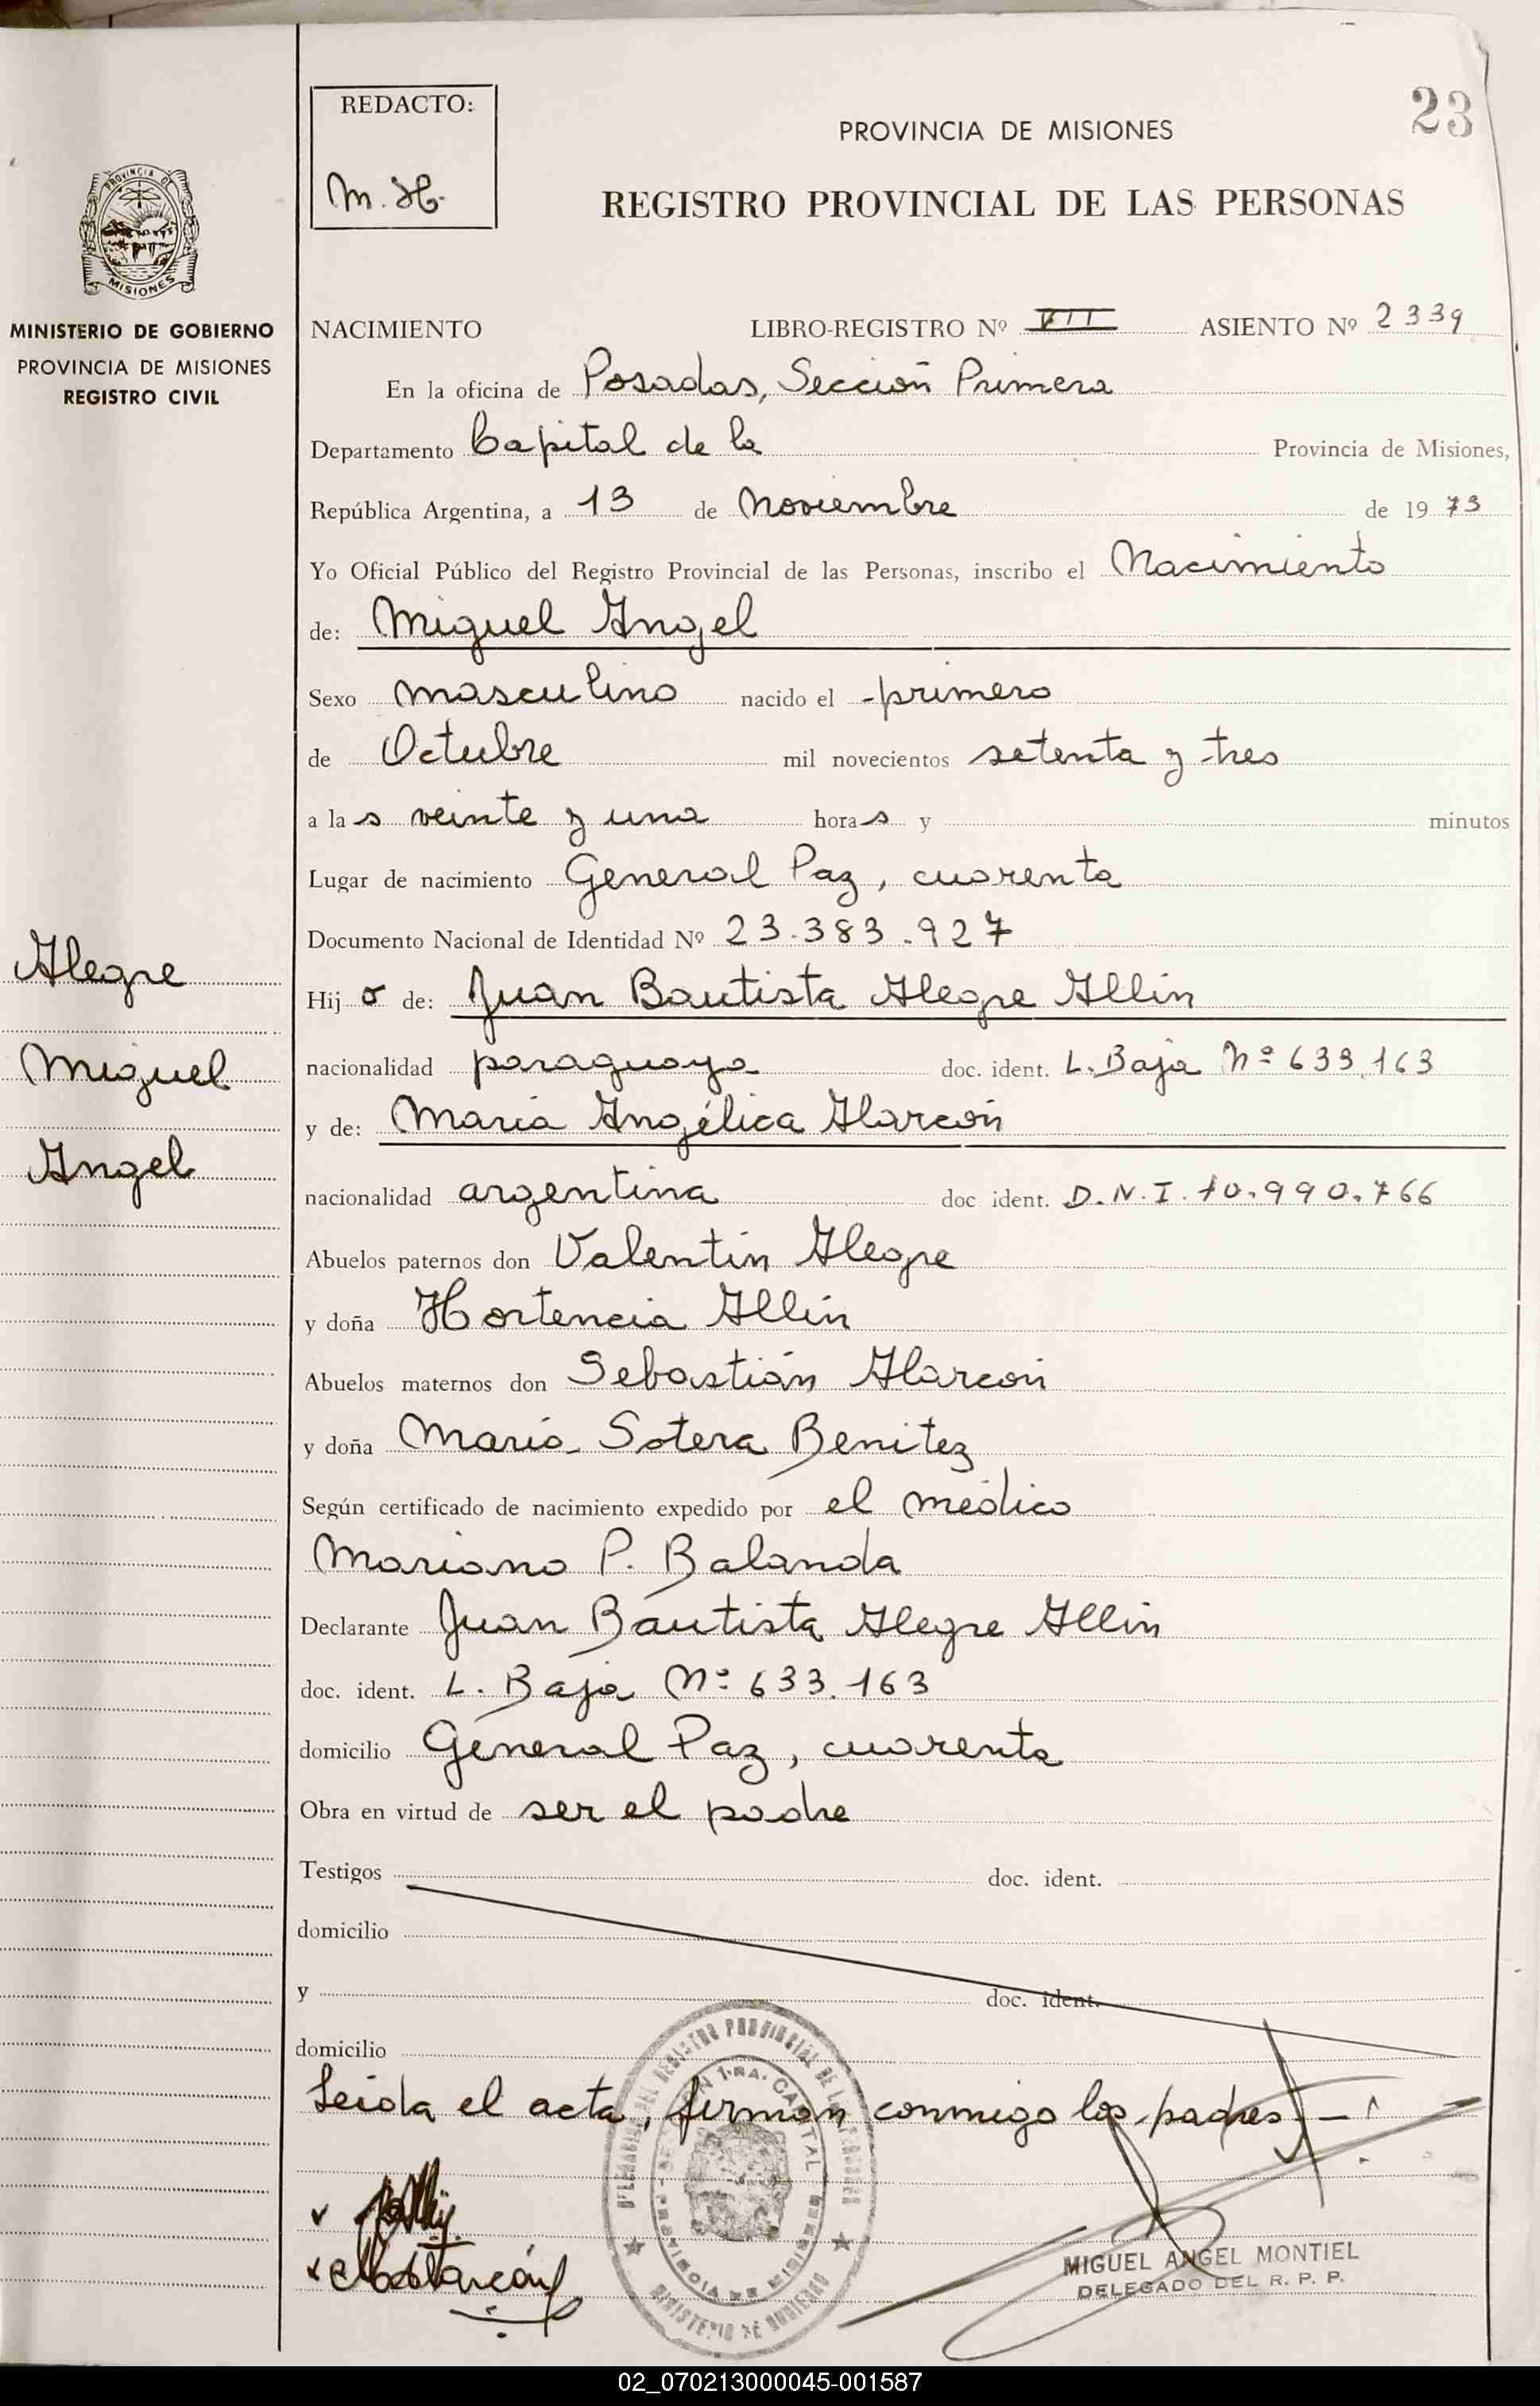 REDACTO:
M. H.
23
PROVINCIA DE MISIONES
REGISTRO PROVINCIAL DE LAS PERSONAS
PROVINCIA DE
MISIONES
MINISTERIO DE GOBIERNO
PROVINCIA DE MISIONES
REGISTRO CIVIL
NACIMIENTO LIBRO-REGISTRO Nº VII ASIENTO Nº 2339
En la oficina de Posadas, Sección Primera
Departamento Capital de la Provincia de Misiones,
República Argentina, a 13 de Noviembre de 1973
Yo Oficial Público del Registro Provincial de las Personas, inscribo el Nacimiento
de: Miguel Angel
Sexo masculino nacido el primero
de Octubre mil novecientos setenta y tres
a las veinte y una horas y minutos
Lugar de nacimiento General Paz, cuarenta
Documento Nacional de Identidad Nº 23.383.927
Alegre
Miguel
Angel
Hijo de: Juan Bautista Alegre Allin
nacionalidad paraguaya doc. ident. L. Baja Nº 633.163
y de: María Angélica Alarcón
nacionalidad argentina doc ident. D.N.I. 10.990.766
Abuelos paternos don Valentín Alegre
y doña Hortencia Allin
Abuelos maternos don Sebastián Alarcón
y doña María Sotera Benitez
Según certificado de nacimiento expedido por el médico
Mariano P. Balanda
Declarante Juan Bautista Alegre Allin
doc. ident. L. Baja Nº 633.163
domicilio General Paz, cuarenta
Obra en virtud de ser el padre
Testigos doc. ident.
domicilio
y doc. ident.
domicilio
Leida el acta, firman conmigo los padres.—
MIGUEL ANGEL MONTIEL
DELEGADO DEL R. P. P.
02_070213000045-001587